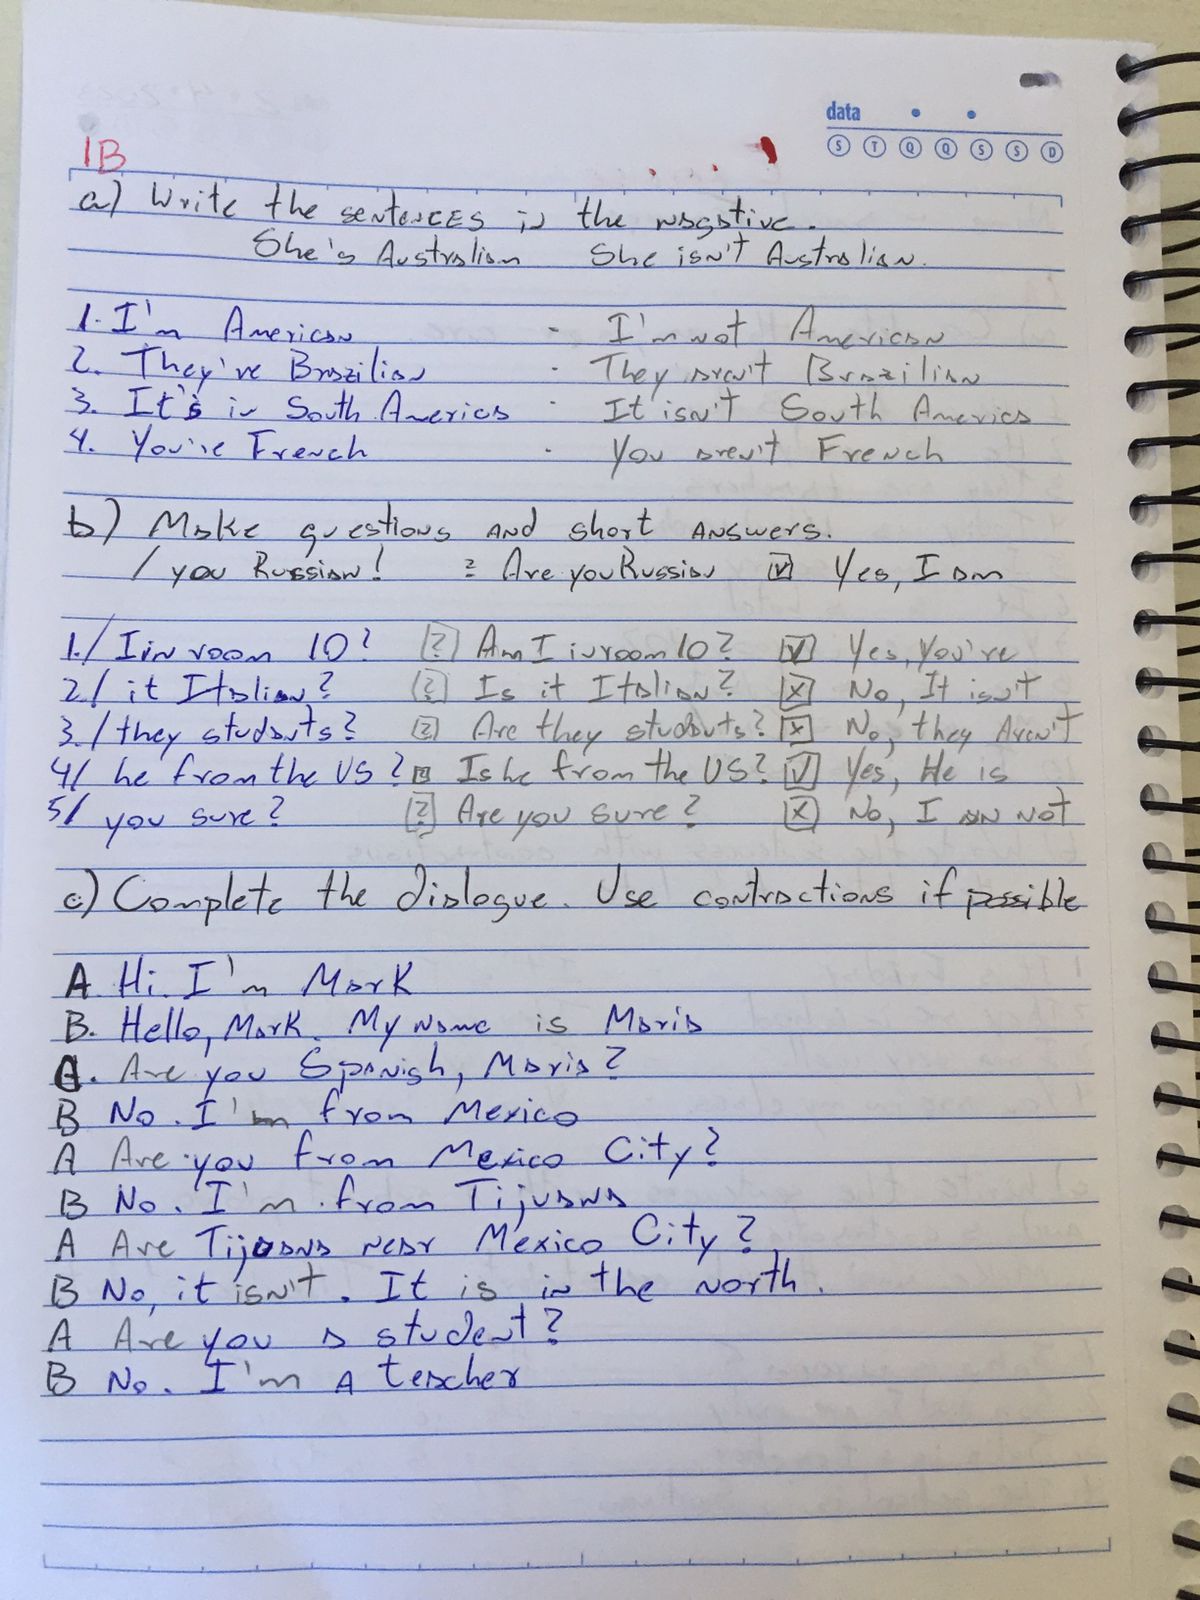 data
S T Q Q S S D
1B
a) Write the sentences in the negative.
She's Australian She isn't Australian.
1. I'm American - I'm not American
2. They're Brazilian - They aren't Brazilian
3. It's in South America - It isn't South America
4. You're French - You aren't French
b) Make questions and short answers.
/ you Russian! ? = Are you Russian ☑ Yes, I am
1./ I in room 10? [?] Am I in room 10? ☑ Yes, You're
2/ it Italian? [?] Is it Italian? ☒ No, It isn't
3./ they students? [?] Are they students? ☒ No, they Aren't
4/ he from the US? [?] Is he from the US? ☑ Yes, He is
5/ you sure? [?] Are you sure? ☒ No, I am not
c) Complete the dialogue. Use contractions if possible
A. Hi. I'm Mark
B. Hello, Mark. My name is Maria
A. Are you Spanish, Maria?
B No. I'm from Mexico
A Are you from Mexico City?
B No. I'm from Tijuana
A Are Tijuana near Mexico City?
B No, it isn't. It is in the north.
A Are you a student?
B No. I'm a teacher